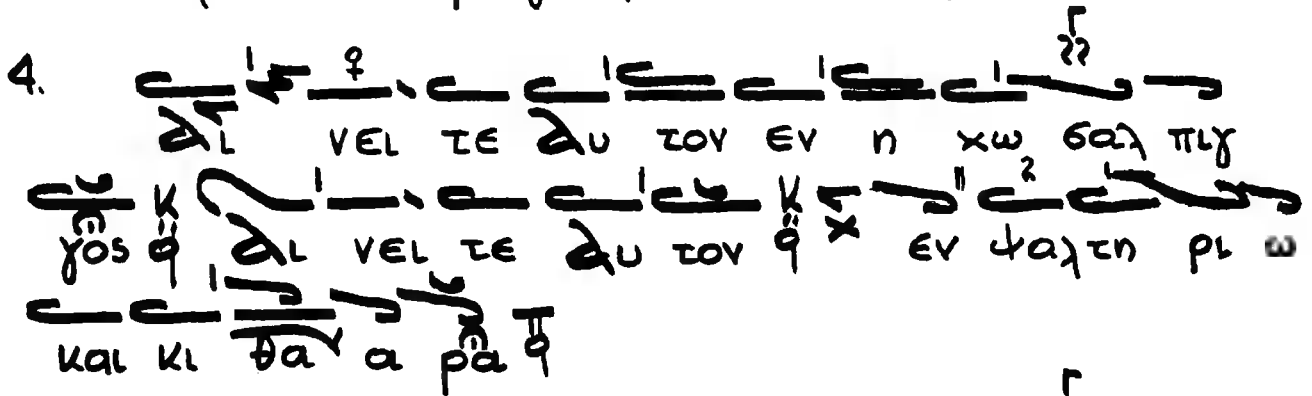 4. αι νει τε αυ τον εν η χω σαλ πιγ
γος Κ αι νει τε αυ τον Κ εν ψαλ τη ρι ω
και κι θα α ρα